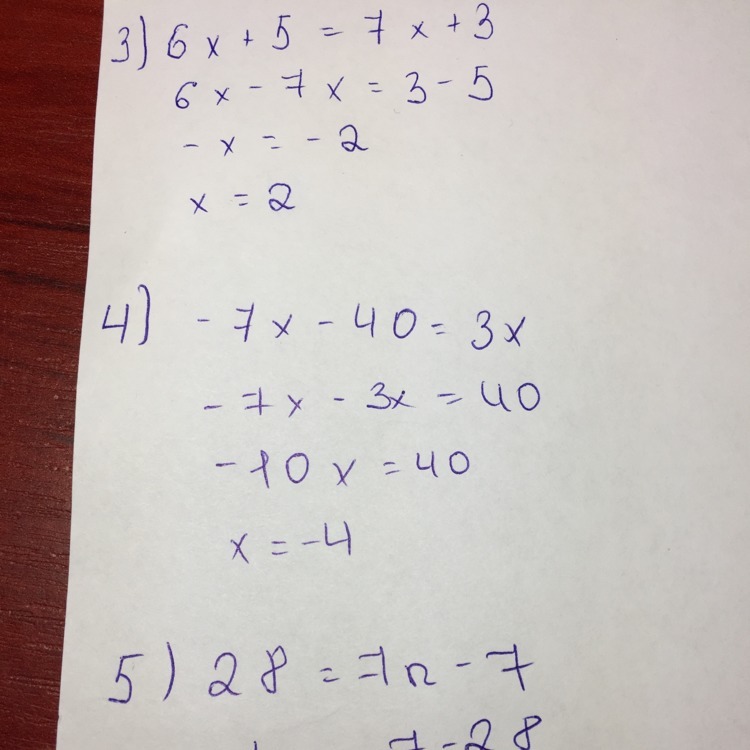 3) 6x + 5 = 7x + 3
6x - 7x = 3 - 5
- x = - 2
x = 2
4) - 7x - 40 = 3x
- 7x - 3x = 40
- 10x = 40
x = -4
5) 28 = 7n - 7
7 - 28